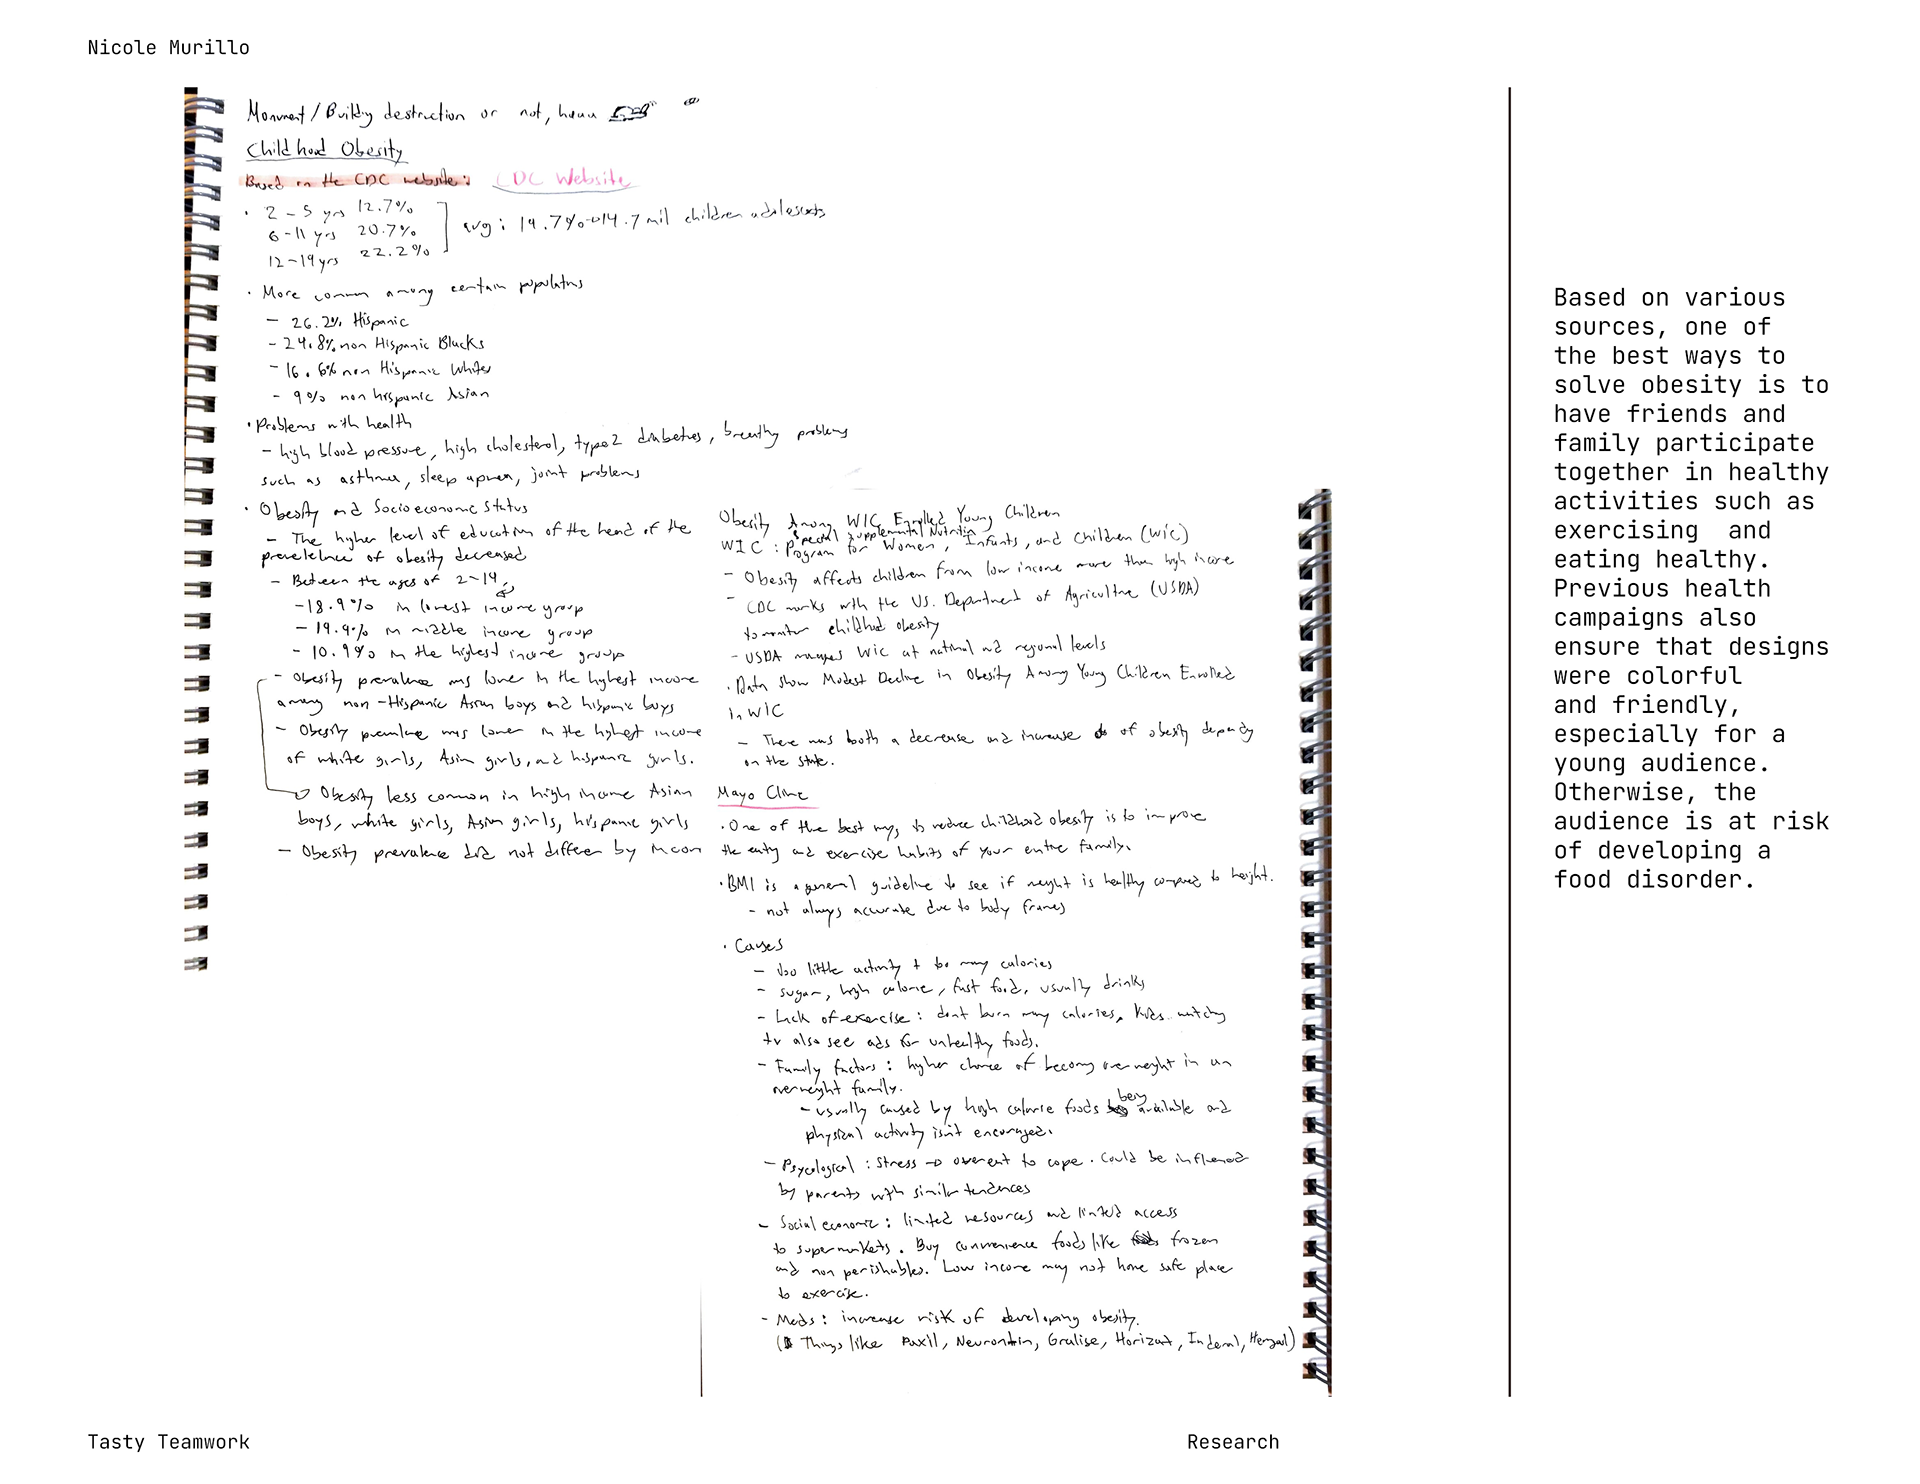 Nicole Murillo
Monument/Building destruction or not,
Childhood Obesity
Based on the CDC website: CDC Website
· 2-5 yrs 12.7%
6-11 yrs 20.7%
12-19 yrs 22.2%
avg: 19.7% → 14.7 mil children adolescents
· More common among certain populations
- 26.2% Hispanic
- 24.8% non Hispanic Blacks
- 16.6% non Hispanic Whites
- 9% non hispanic Asian
· Problems with health
- high blood pressure, high cholesterol, type 2 diabetes, breathing problems
such as asthma, sleep apnea, joint problems
· Obesity and Socioeconomic Status
- The higher level of education of the head of the
prevelence of obesity decreased
- Between the ages of 2-19
- 18.9% in lowest income group
- 19.9% in middle income group
- 10.9% in the highest income group
- Obesity prevalence was lower in the highest income
among non-Hispanic Asian boys and hispanic boys
- Obesity prevalence was lower in the highest income
of white girls, Asian girls, and hispanic girls.
→ Obesity less common in high income Asian
boys, white girls, Asian girls, hispanic girls
- Obesity prevalence did not differ by incom
Obesity Among WIC Enrolled Young Children
WIC: Special Supplemental Nutrition
Program for Women, Infants, and Children (WIC)
- Obesity affects children from low income more than high income
- CDC works with the US. Department of Agriculture (USDA)
to monitor childhood obesity
- USDA manages WIC at national and regional levels
· Data show Modest Decline in Obesity Among Young Children Enrolled
in WIC
- There was both a decrease and increase of obesity depending
on the state.
Mayo Clinic
· One of the best ways to reduce childhood obesity is to improve
the eating and exercise habits of your entire family.
· BMI is a general guideline to see if weight is healthy compared to height.
- not always accurate due to body frames
· Causes
- too little activity + too many calories
- sugar, high calorie, fast food, usually drinks
- Lack of exercise: dont burn many calories. Kids watching
tv also see ads for unhealthy foods.
- Family factors: higher chance of becoming overweight in an
overweight family.
- usually caused by high calorie foods being available and
physical activity isn't encouraged.
- Psycological: Stress → overeat to cope. Could be influenced
by parents with similar tendences
- Social economic: limited resources and limited access
to supermarkets. Buy convenience foods like frozen
and non perishables. Low income may not have safe place
to exercise.
- Meds: increase risk of developing obesity.
( Things like Paxil, Neurontin, Gralise, Horizant, Inderal, )
Based on various
sources, one of
the best ways to
solve obesity is to
have friends and
family participate
together in healthy
activities such as
exercising and
eating healthy.
Previous health
campaigns also
ensure that designs
were colorful
and friendly,
especially for a
young audience.
Otherwise, the
audience is at risk
of developing a
food disorder.
Tasty Teamwork
Research